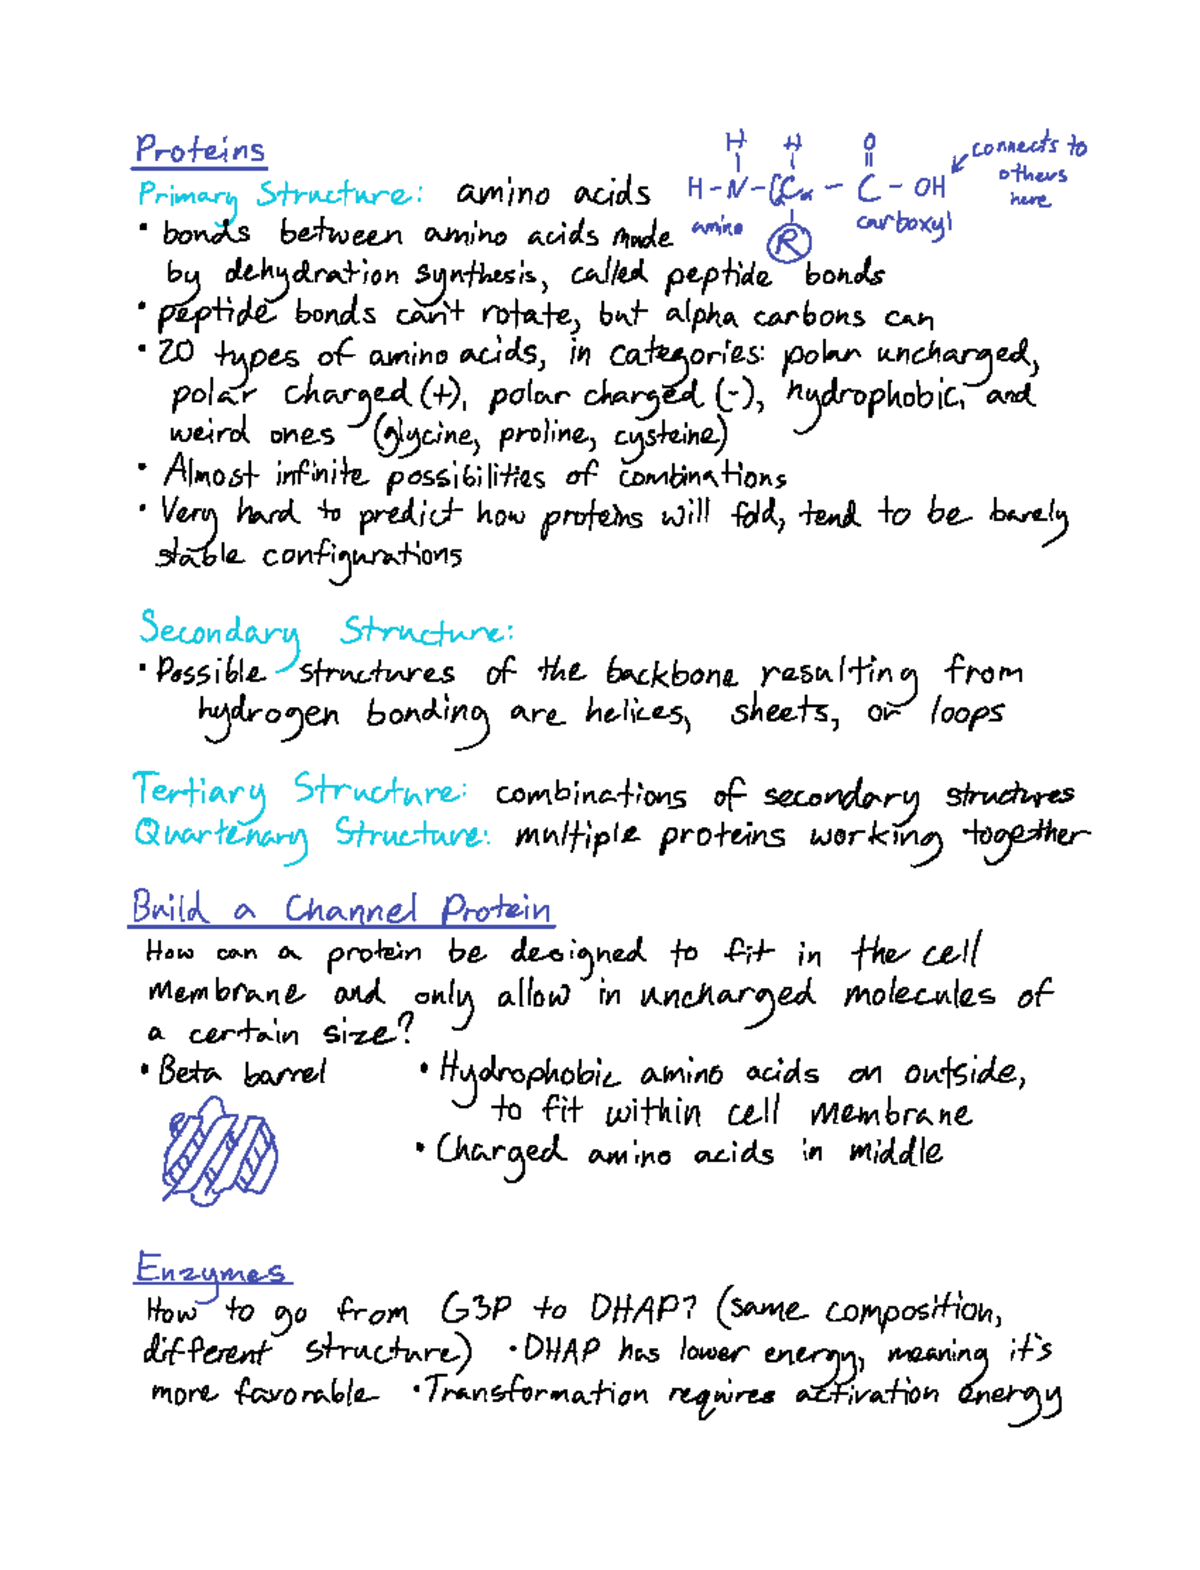 Proteins
Primary Structure: amino acids
H H O
H-N-Cα-C-OH
amino R carboxyl
connects to
others
here
• bonds between amino acids made
by dehydration synthesis, called peptide bonds
• peptide bonds can't rotate, but alpha carbons can
• 20 types of amino acids, in categories: polar uncharged,
polar charged (+), polar charged (-), hydrophobic, and
weird ones (glycine, proline, cysteine)
• Almost infinite possibilities of combinations
• Very hard to predict how proteins will fold, tend to be barely
stable configurations
Secondary Structure:
• Possible structures of the backbone resulting from
hydrogen bonding are helices, sheets, or loops
Tertiary Structure: combinations of secondary structures
Quartenary Structure: multiple proteins working together
Build a Channel Protein
How can a protein be designed to fit in the cell
membrane and only allow in uncharged molecules of
a certain size?
• Beta barrel
• Hydrophobic amino acids on outside,
to fit within cell membrane
• Charged amino acids in middle
Enzymes
How to go from G3P to DHAP? (same composition,
different structure) • DHAP has lower energy, meaning it's
more favorable • Transformation requires activation energy